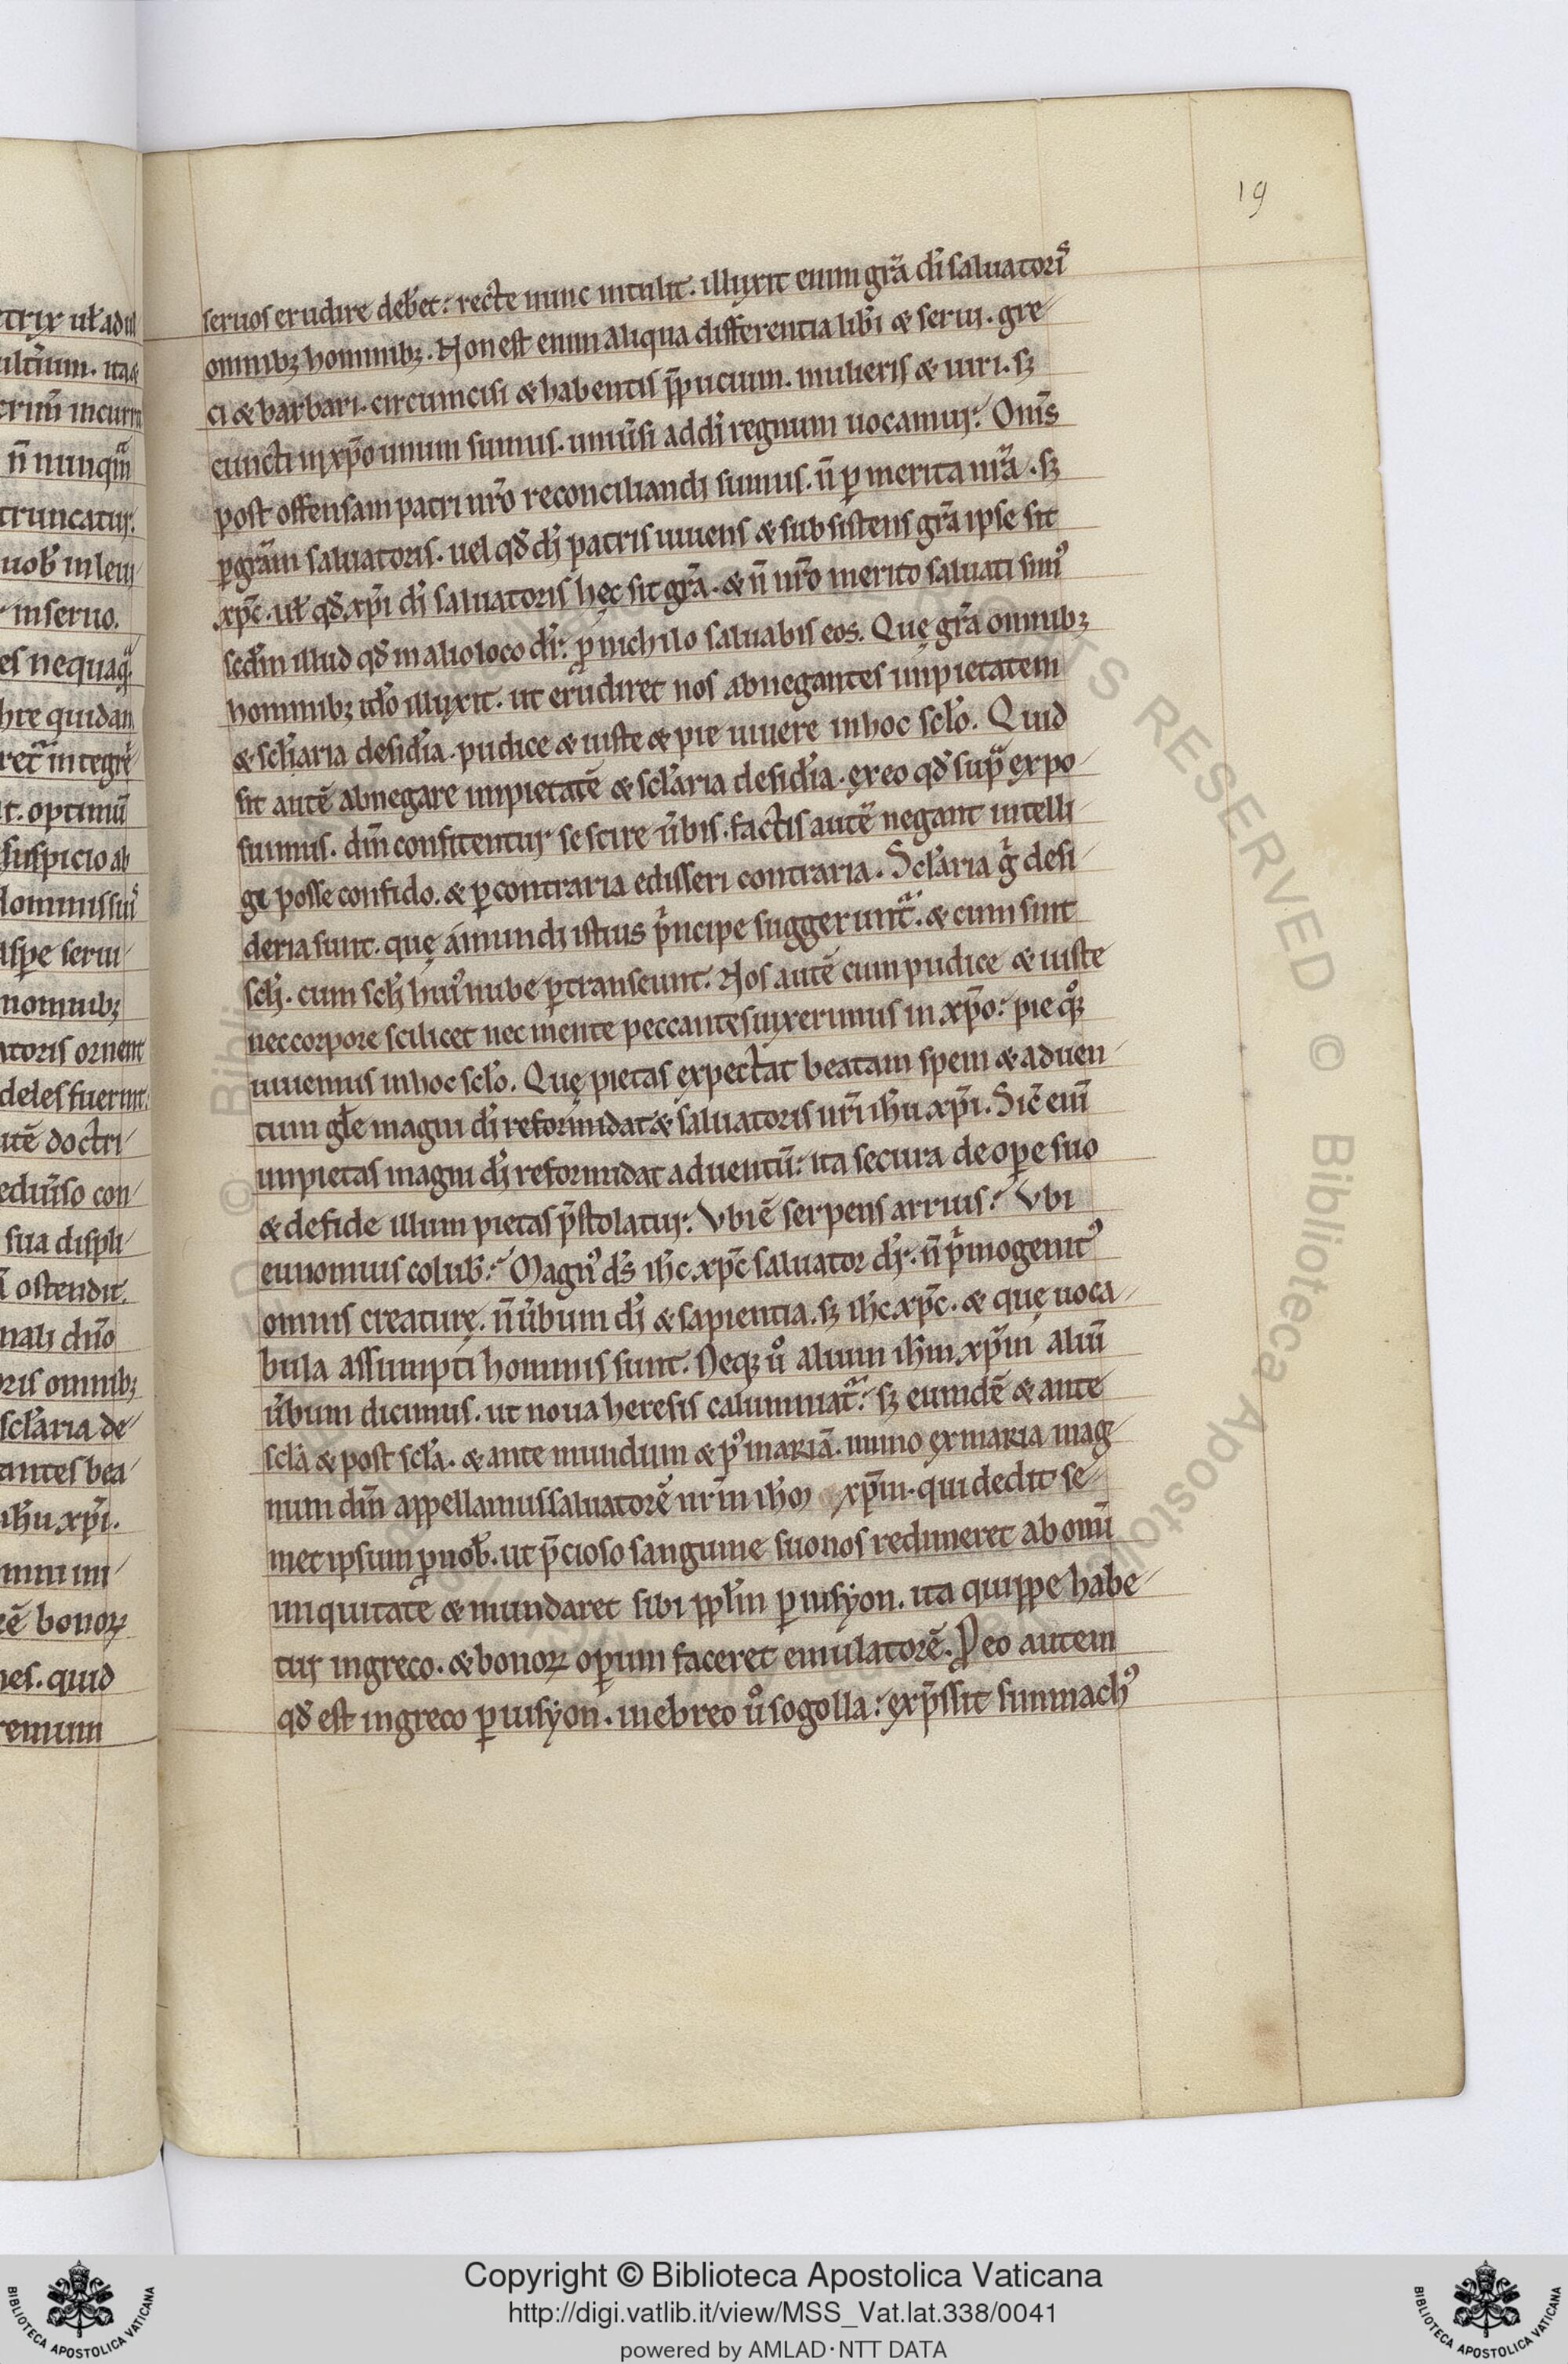 19
seruos erudire deb&et: recte nunc intulit. illuxit enim gr̄a dī saluatoris
omnibꝫ hominibꝫ. Non est enim aliqua differentia lib̄i & serui. gre-
ci & barbari. circumcisi & habentis p̄pucium. mulieris & uiri. sꝫ
cuncti in xp̄o unum sumus. uniūsi ad dī regnum uocamur. Om̄s
post offensam patri nr̄o reconciliandi sumus. n̄ ꝑ merita nr̄a. sꝫ
ꝑ gr̄am saluatoris. uel qd̄ dī patris uiuens & subsistens gr̄a ipse sit
xp̄c. ul̄ qd̄ xp̄i dī saluatoris hęc sit gr̄a. & n̄ nr̄o merito saluati simꝰ
sed̄m illud qd̄ in alio loco dr̄: ꝓ nichilo saluabis eos. Quę gr̄a omnibꝫ
hominibꝫ id̄o illuxit. ut erudiret nos abnegantes impietatem
& scl̄aria desid̄ia. pudice & iuste & pie uiuere in hoc scl̄o. Quid
sit autē abnegare impietatē & scl̄aria desid̄ia. ex eo qd̄ sup̄ expo-
suimus. dm̄ confitentur se scire ūbis. factis autē negant intelli-
gi posse confido. & ꝑ contraria edisseri contraria. Scl̄aria g̊ desi-
deria sunt. quę a mundi istius p̄ncipe suggerunt̄. & cum sint
scl̄i. cum scl̄i huiꝰ nube ꝑtranseunt. Nos autē cum pudice & iuste
nec corpore scilicet nec mente peccantes uixerimus in xp̄o: pie qꝫ
uiuemus in hoc scl̄o. Quę pietas expectat beatam spem & aduen-
tum gl̄e magni dī reformidat & saluatoris nr̄i ih̄u xp̄i. Sic̄ enī
impietas magni dī reformidat aduentū: ita secura de oꝑe suo
& de fide illum pietas p̄stolatur. Vbi ē serpens arrius? Vbi
eunomius colub̄? Magnꝰ d̄s ih̄c xp̄c saluator dr̄. n̄ p̄mogenitꝰ
omnis creaturę. n̄ ūbum dī & sapientia. sꝫ ih̄c xp̄c. & quę uoca-
bula assumpti hominis sunt. Neqꝫ ů alium ih̄m xp̄m aliū
ūbum dicimus. ut noua heresis calumniat̄: sꝫ eundē & ante
scl̄a & post scl̄a. & ante mundum & pꝰ mariā. immo ex maria mag-
num dm̄ appellamus saluatorē nr̄m ih̄m xp̄m. qui dedit se-
met ipsum ꝓ nob̄. ut p̄cioso sanguine suo nos redimeret ab omī
iniquitate & mundaret sibi ppl̄m periusyon. ita quippe habe-
tur in greco. & bonoꝝ oꝑum faceret emulatorē. Pro eo autem
qd̄ est in greco ꝑiusyon. in ebreo ů sogolla: exp̄ssit simmachꝰ
Copyright © Biblioteca Apostolica Vaticana
http://digi.vatlib.it/view/MSS_Vat.lat.338/0041
powered by AMLAD·NTT DATA